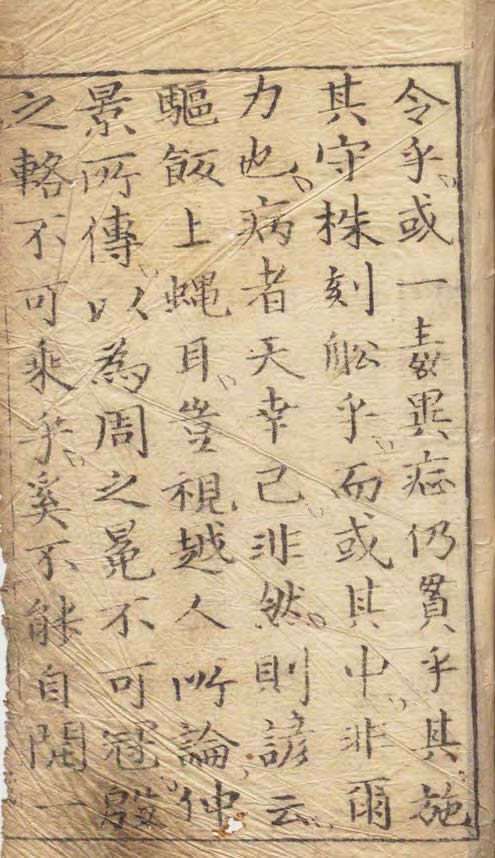 令乎或一異痣仍貫乎其施
其守株刻舩乎而或其中非爾
力也病者天幸已非然則諺云
驅飯上蝿耳豈視越人所論仲
景所傳以為周之冕不可冠殷
之輅不可乘乎奚不能自開一